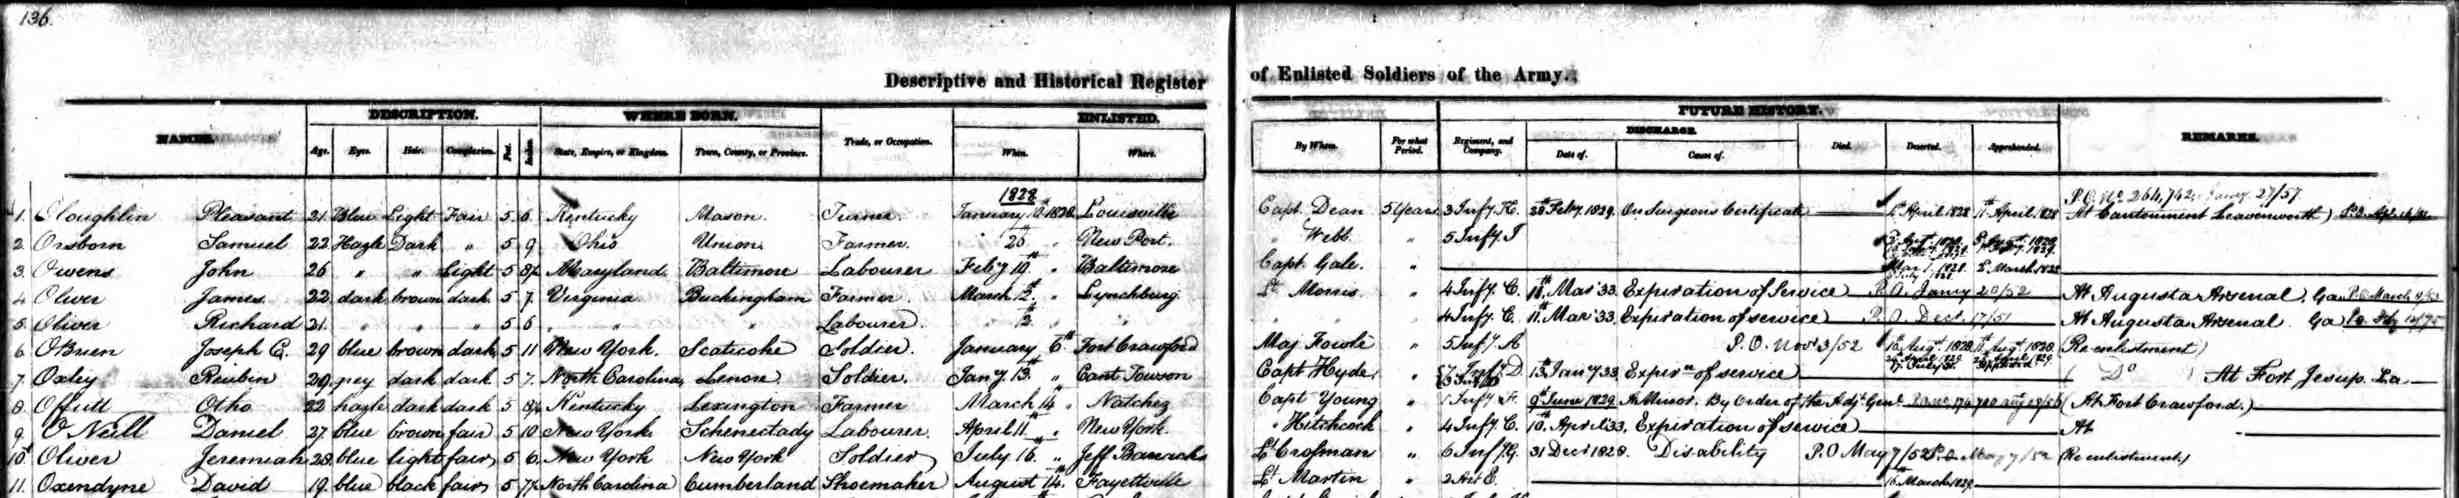 136.
Descriptive and Historical Register of Enlisted Soldiers of the Army.
NAMES. DESCRIPTION. WHERE BORN. ENLISTED. FUTURE HISTORY. REMARKS.
Age. Eyes. Hair. Complexion. Feet. Inches. State, Empire, or Kingdom. Town, County, or Province. Trade, or Occupation. When. Where. By Whom. For what Period. Regiment, and Company. DISCHARGE. Date of. Cause of. Died. Deserted. Apprehended.
1828
P.O. No 264,742, Jany 27/57
1. Oloughlin Pleasant 21 Blue Light Fair 5 6 Kentucky Mason Turner January 10th 1828 Louisville Capt. Dean 5 Years 3 Infy. K. 28 Feby. 1829. On Surgeons Certificate April 1828 11th April 1828 At Cantonment Leavenworth)
2. Orsborn Samuel 22 Hazle Dark " 5 9 Ohio Union Farmer. " 25 " New Port. " Webb " 5 Infy. I
3. Owens John 26 " " Light 5 8½ Maryland Baltimore Labourer Feby 10th " Baltimore Capt. Gale. "
4 Oliver James 22 dark brown dark 5 7. Virginia Buckingham Farmer March 2d " Lynchburg Lt Morris " 4 Infy. C. 11th Mar '33. Expiration of Service P.O. Jany 20/52 At Augusta Arsenal, Ga
5. Oliver Richard 21 " " " 5 6 " " Labourer. " 12 " " " " 4 Infy. C. 11th Mar '33. Expiration of service P.O. Dec. 17/51 At Augusta Arsenal. Ga
6. OBrien Joseph C. 29 blue brown dark 5 11 New York. Scaticoke Soldier. January 6th Fort Crawford Maj Fowle " 5 Infy A P.O. Nov 3/52 Re-enlistment)
7. Oxley Reubin 29 grey dark dark 5 7. North Carolina Lenore Soldier. Jany. 13th " Cant Towson Capt Hyde " 7 Infy D 13 Jany 33. Expirn of service ( Do ) At Fort Jesup. La
8. Offutt Otho 22 hazle dark dark 5 8½ Kentucky Lexington Farmer March 14 " Natchez Capt Young " 1 Infy F. 9th June 1829 A Minor. By Order of the Adjt Genl (At Fort Crawford.)
9. O'Neill Daniel 27 blue brown fair 5 10 New York Schenectady Labourer. April 11 " New York. " Hitchcock " 4 Infy. C. 10th April '33. Expiration of service At
10 Oliver Jeremiah 28 blue light fair 5 6. New York New York Soldier July 16th " Jeff Barracks Lt Crosman " 6 Infy. G. 31 Decr 1828. Disability P.O May 7/52 P.O. May 7/52 (Re enlistment)
11. Oxendyne David 19. blue black fair 5 7½ North Carolina Cumberland Shoemaker August 14th Fayetteville Lt Martin " 2 Art E. 16 March 1829